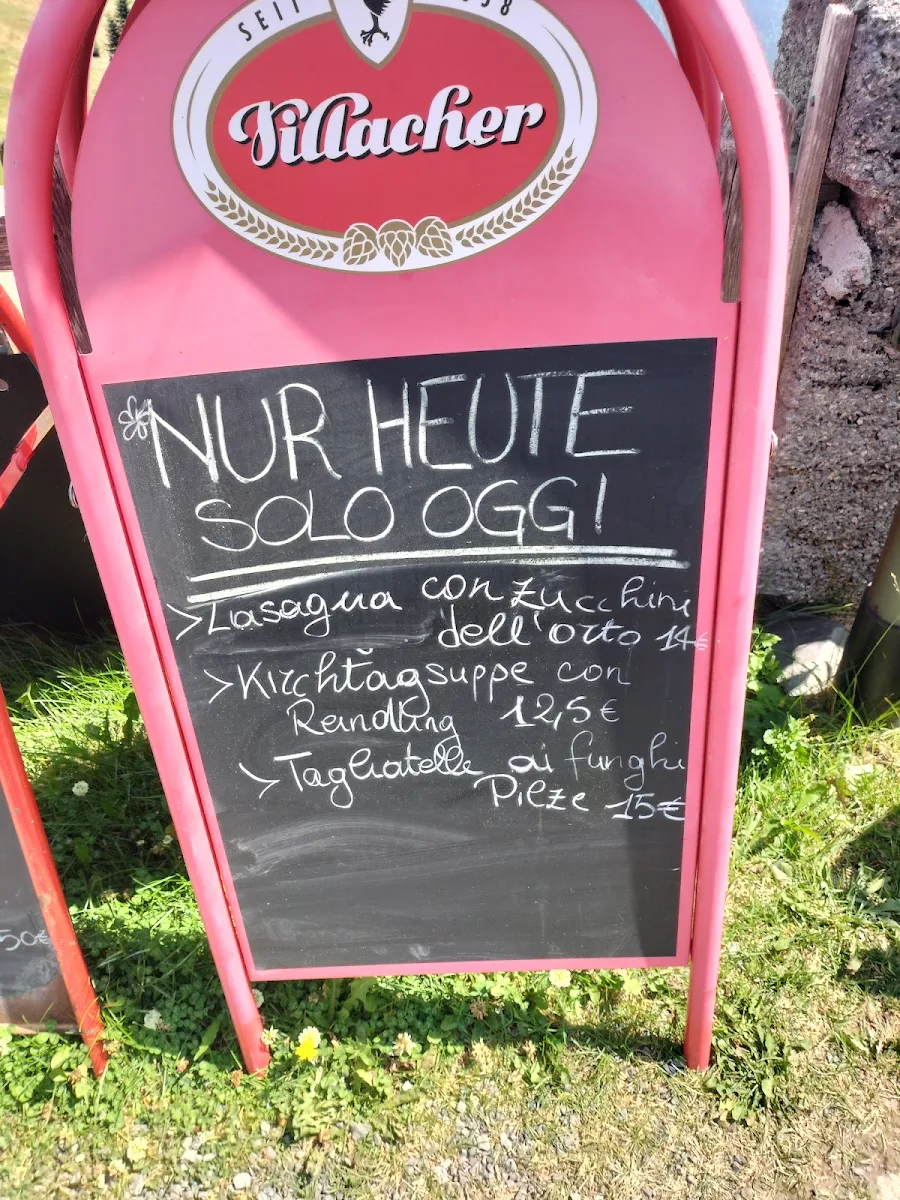 SEIT 1858
Villacher
NUR HEUTE
SOLO OGGI
>Lasagna con zucchini
dell'orto 14€
>Kirchtagsuppe con
Reindling 12,5€
>Tagliatelle ai funghi
Pilze 15€
50€